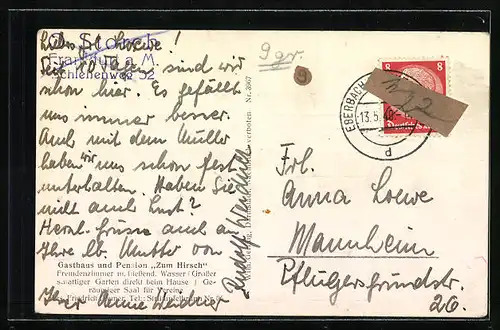 Frankfurt a. M.
Schlehenweg 52
Liebes Frl. Loewe!
Seit 10 Tagen sind wir
schon hier. Es gefällt
uns immer besser.
Auch mit dem Müller
haben wir uns schon fest
unterhalten. Haben Sie
nicht auch Lust?
Herzl. Grüsse auch an
Ihre lb. Mutter von
Gasthaus und Pension „Zum Hirsch"
Fremdenzimmer m. fließend. Wasser / Großer
schattiger Garten direkt beim Hause / Ge-
räumiger Saal für Vereine
Ihrer
verboten Nr. 3967
9 gr.
9
8 8
EBERBACH
13.5.40
d
Frl.
Anna Loewe
Mannheim
Pflügersgrundstr.
26.